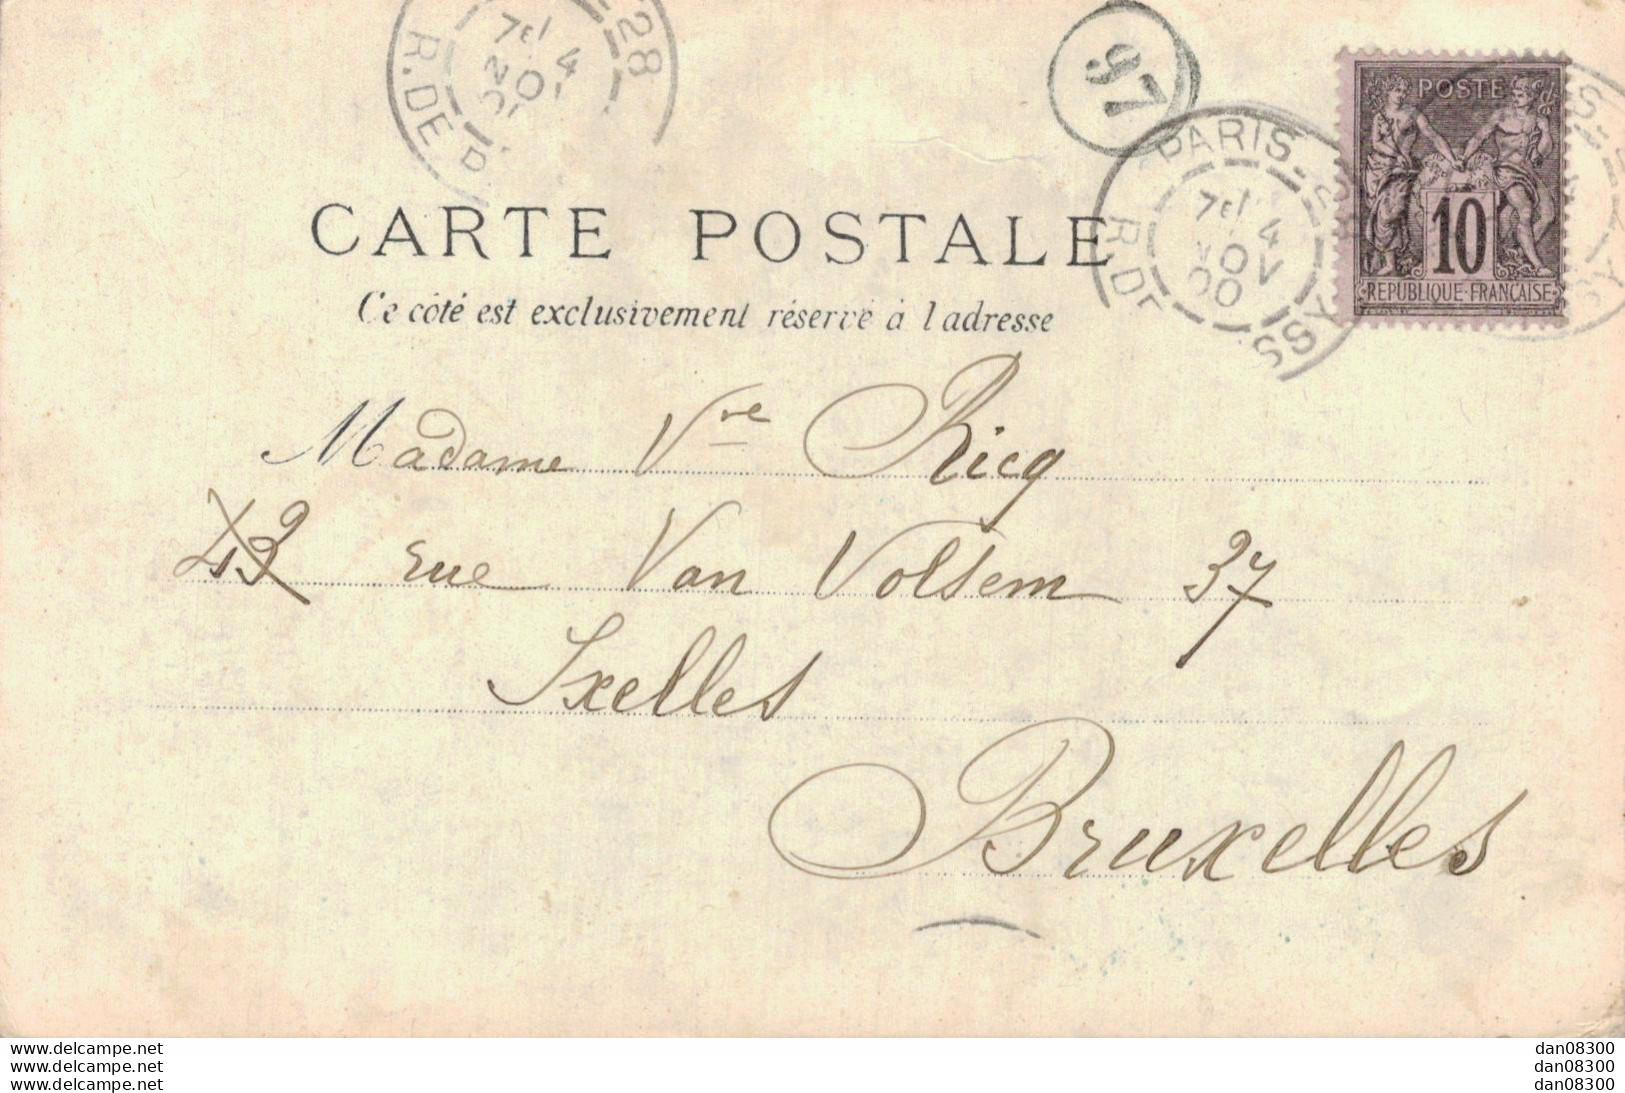 28
R. DE P
7E 4
NO
97
PARIS-28
7E 4
NOV
00
R. DE
SSY
POSTE
10
REPUBLIQUE FRANÇAISE
CARTE POSTALE
Ce côté est exclusivement réservé à l'adresse
Madame Vve Ricq
43 rue Van Volsem 37
Ixelles
Bruxelles
www.delcampe.net
www.delcampe.net
www.delcampe.net
dan08300
dan08300
dan08300